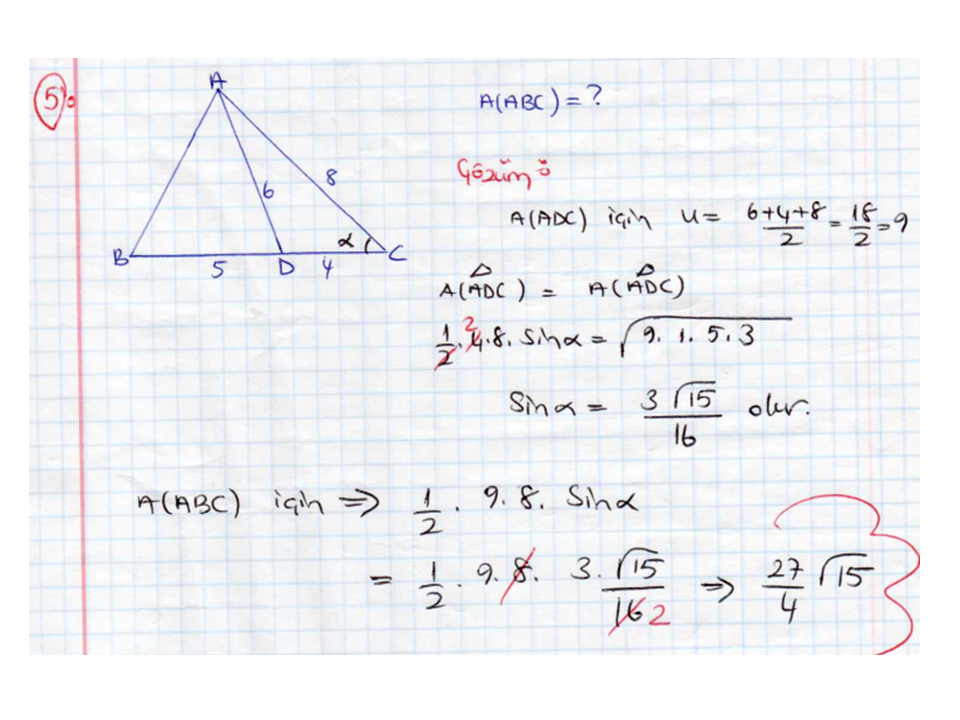 5)
A
6
8
α
B
5
D
4
C
A(ABC) = ?
Çözüm:
A(ADC) için u = (6+4+8)/2 = 18/2 = 9
A(ADC) = A(ADC)
1/2 . 4 2 . 8 . Sinα = √(9.1.5.3)
Sinα = 3√15/16 olur.
A(ABC) için ⇒ 1/2 . 9.8. Sinα
= 1/2 . 9.8. 3.√15/16 2 ⇒ 27/4 √15